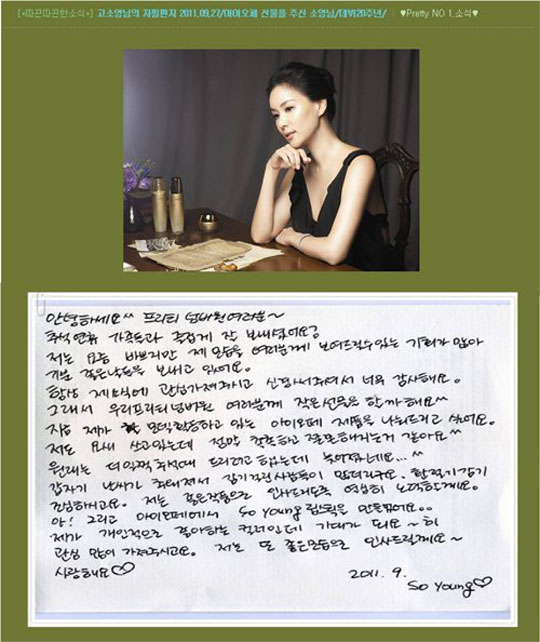 [*따끈따끈한소식*] 고소영님의 자필편지 2011.09.27/아이오페 선물을 주신 소영님/데뷔20주년/ | ♥Pretty NO 1.소식♥
안녕하세요^^ 프리티 넘버원여러분~
추석연휴 가족들과 즐겁게 잘 보내셨어요?
저는 요즘 바쁘지만 제 모습을 여러분께 보여드릴수있는 기회가 많아
기분 좋은날들을 보내고 있어요.
항상 제소식에 관심가져주시고 신경써주셔서 너무 감사해요.
그래서 우리프리티넘버원 여러분께 작은선물을 할까해요^^
지금 제가 모델활동하고 있는 아이오페 제품을 나눠드리고 싶어요.
저도 요새 쓰고있는데 정말 촉촉하고 해지는거 같아요^^
원래는 더일찍 추석때 드리려고 했는데 늦어졌네요...^^
갑자기 날씨가 추워져서 감기걸린사람들이 많더라구요. 환절기감기
조심하시고요. 저는 좋은작품으로 인사드리도록 열심히 노력할게요.
아! 그리고 아이오페에서 So Young립스틱을 만들었어요..
제가 개인적으로 좋아하는 컬러인데 기대가 돼요~ 히
관심 많이 가져주시고요. 저는 또 좋은모습으로 인사드릴께요~
사랑해요♡♡
2011. 9.
So Young♡